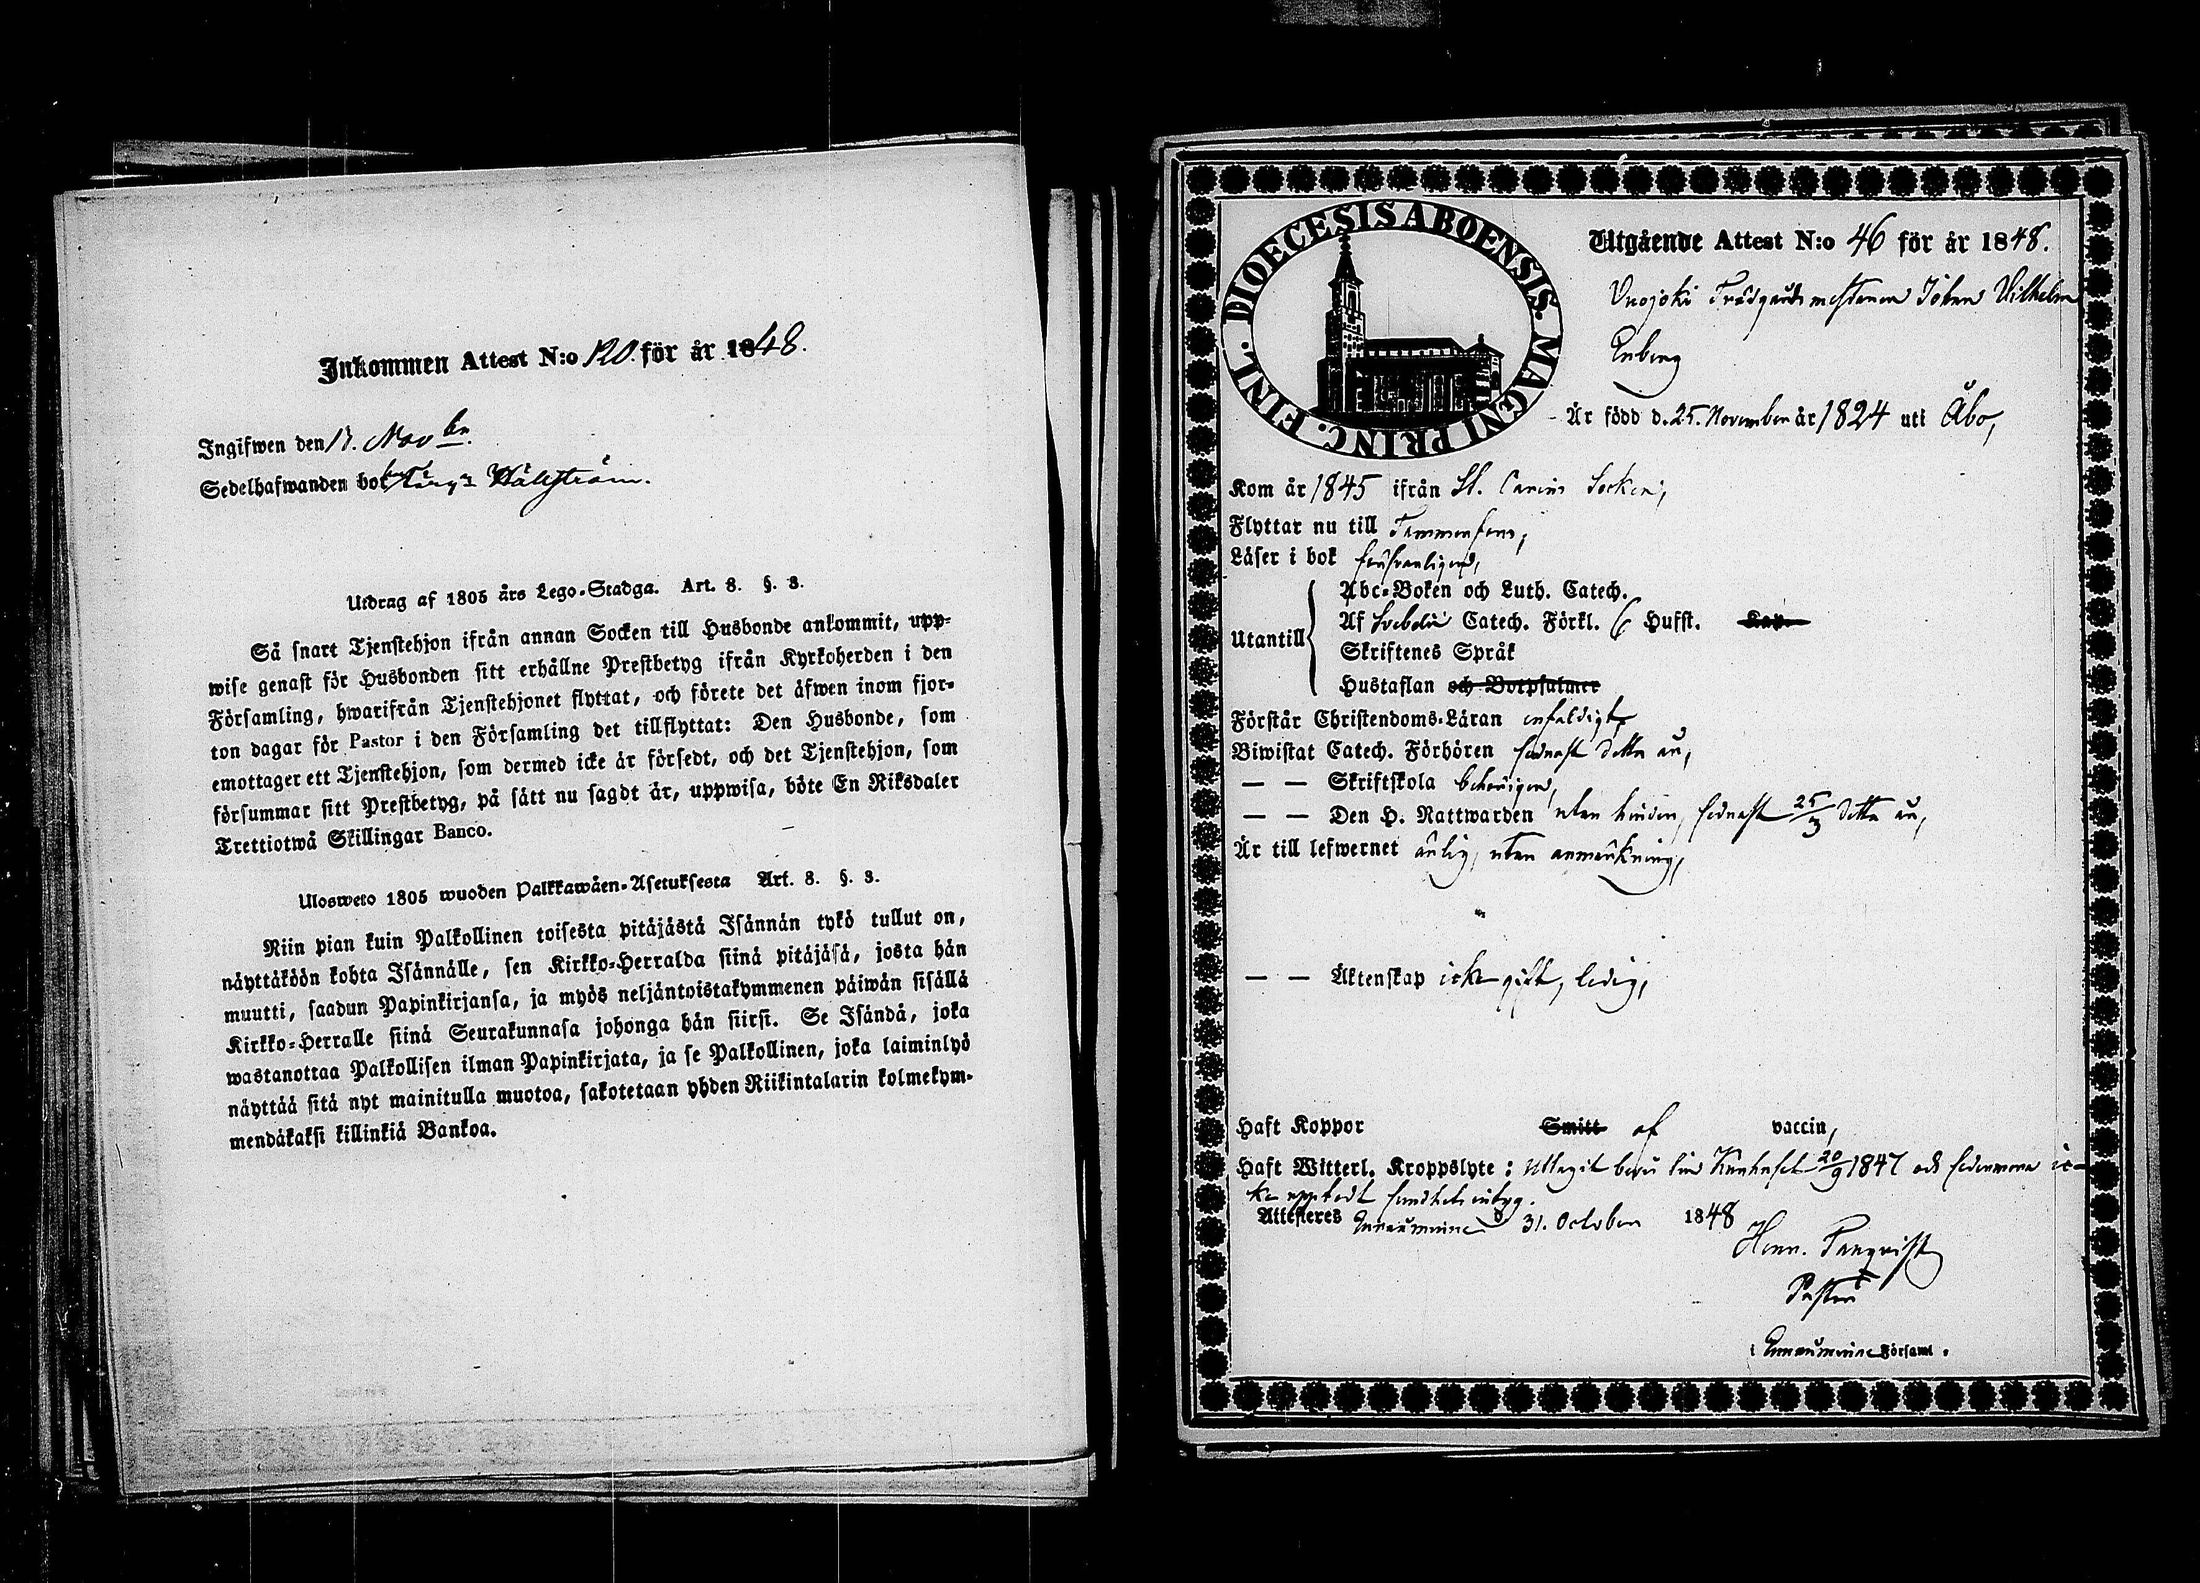 Inkommen Attest N:o 120. för år 1848.
Ingifwen den 17. Novbr.
Sedelhafwanden bor
Utdrag af 1805 års Lego-Stadga. Art. 8. §. 3.
Så snart Tjenstehjon ifrån annan Socken till Husbonde ankommit, upp-
wise genast för Husbonden sitt erhållne Prestbetyg ifrån Kyrkoherden i den
Församling, hwarifrån Tjenstehjonet flyttat, och förete det äfwen inom fjor-
ton dagar för Pastor i den Församling det tillflyttat: Den Husbonde, som
emottager ett Tjenstehjon, som dermed icke är försedt, och det Tjenstehjon, som
försummar sitt Prestbetyg, på sätt nu sagdt är, uppwisa, böte En Riksdaler
Trettiotwå Skillingar Banco.
Ulosweto 1805 wuoden Palkkawäen-Asetuksesta Art. 8. §. 3.
Niin pian kuin Palkollinen toisesta pitäjästä Isännän tykö tullut on,
näyttäköön kohta Isännälle, sen Kirkko-Herralda siinä pitäjäsä, josta hän
muutti, saadun Papinkirjansa, ja myös neljäntoistakymmenen päiwän sisällä
Kirkko-Herralle siinä Seurakunnasa johonga hän siirsi. Se Isändä, joka
wastanottaa Palkollisen ilman Papinkirjata, ja se Palkollinen, joka laiminlyö
näyttää sitä nyt mainitulla muotoa, sakotetaan yhden Riikintalarin kolmekym-
mendäkaksi killinkiä Bankoa.
DIOECESIS ABOENSIS. MAGNI PRINC. FINL.
Utgående Attest N:o 46 för år 1848.
Vuojoki Trädgårdsmästaren Johan Wilhelm
Enberg
Är född d. 25. November år 1824 uti Åbo,
Kom år 1845 ifrån St. Carins Socken,
Flyttar nu till Tammerfors,
Läser i bok försvarligen,
Utantill
Abc-Boken och Luth. Catech.
Af Svebelii Catech. Förkl. 6 Hufst. Kap.
Skriftenes Språk
Hustaflan och Botpsalmer
Förstår Christendoms-Läran enfaldigt,
Biwistat Catech. Förhören sednast detta år,
— — Skriftskola behörigen,
— — Den H. Nattwarden utan hinder, sednast 25/3 detta år,
Är till lefwernet ärlig, utan anmärkning,
— — Äktenskap icke gift, ledig,
Haft Koppor Smitt af vaccin,
Haft Witterl. Kroppslyte: Uttagit 20/9 1847 och sedermera ic-
ke uppbådt
Attesteres Euraåminne d 31. October 1848
Henr.
Pastor
i Euraåminne Församl.